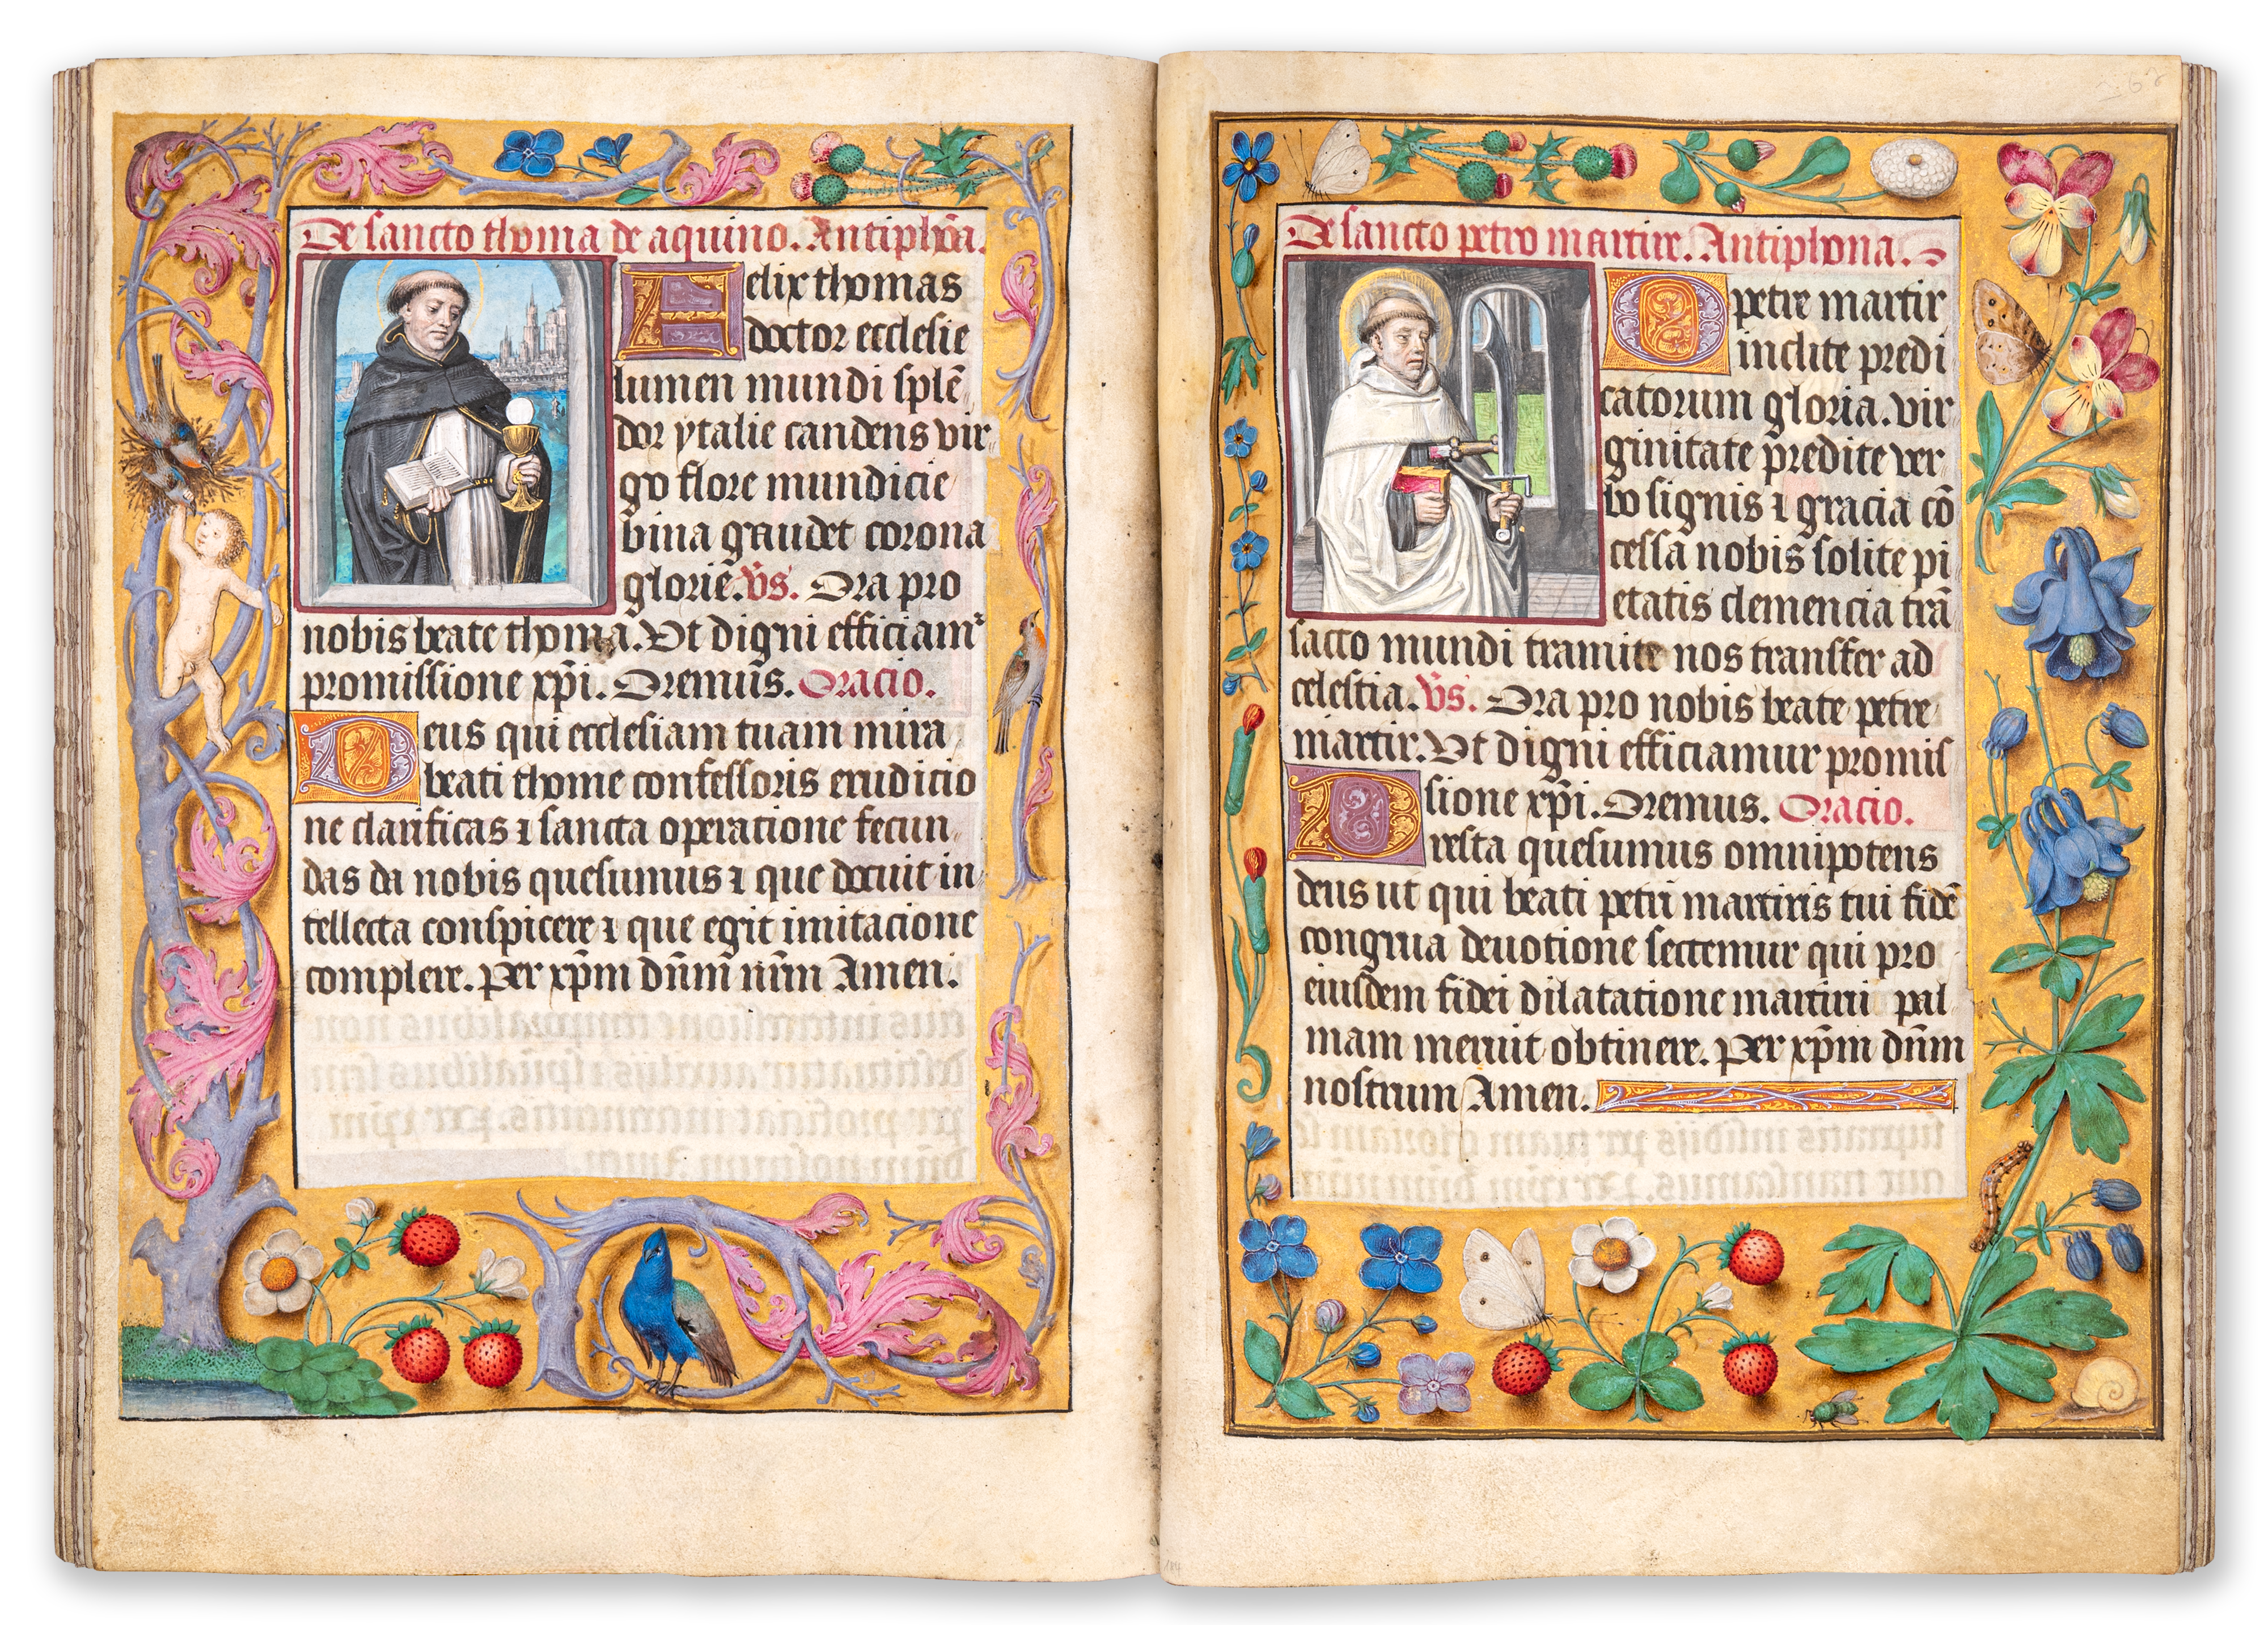 De sancto thoma de aquino. Antiphōa.
Felix thomas
doctor ecclesie
lumen mundi splē
dor ytalie candens vir
go flore mundicie
bina gaudet corona
glorie. v̄s. Ora pro
nobis beate thoma. Vt digni efficiam᷑
promissione xp̄i. Oremus. Oracio.
Deus qui ecclesiam tuam mira
beati thome confessoris erudicio
ne clarificas ⁊ sancta operatione fecun
das da nobis quesumus ⁊ que docuit in
tellecta conspicere ⁊ que egit imitacione
complere. Per xp̄m dn̄m nr̄m Amen.
De sancto petro martire. Antiphona.
O petre martir
inclite predi
catorum gloria. vir
ginitate predite ver
bo signis ⁊ gracia cō
cessa nobis solite pi
etatis clemencia trā
sacto mundi tramite nos transfer ad
celestia. v̄s. Ora pro nobis beate petre
martir. Vt digni efficiamur promis
sione xp̄i. Oremus. Oracio.
Presta quesumus omnipotens
deus ut qui beati petri martiris tui fidē
congrua deuotione sectemur qui pro
eiusdem fidei dilatatione martirii pal
mam meruit obtinere. Per xp̄m dn̄m
nostrum Amen.